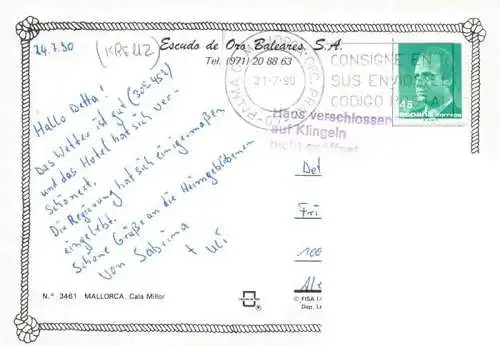 24.7.90
(KREUZ
Escudo de Oro Baleares, S.A.
Tel. (971) 20 88 63
PALMA
31-7-90
CONSIGNE EN
SUS ENVIOS
CODIGO
45
España correos
Haus verschlossen
auf Klingeln
nicht geöffnet
Hallo Detta!
Das Wetter ist gut
und das Hotel hat sich ver-
schönert.
Die Regierung hat sich einigermaßen
eingelebt.
Schöne Grüße an die Heimgebliebenen
von Sabrina
+ Uli
Det
Fri
N.º 3461 MALLORCA. Cala Millor
© FISA I.
Dep. L